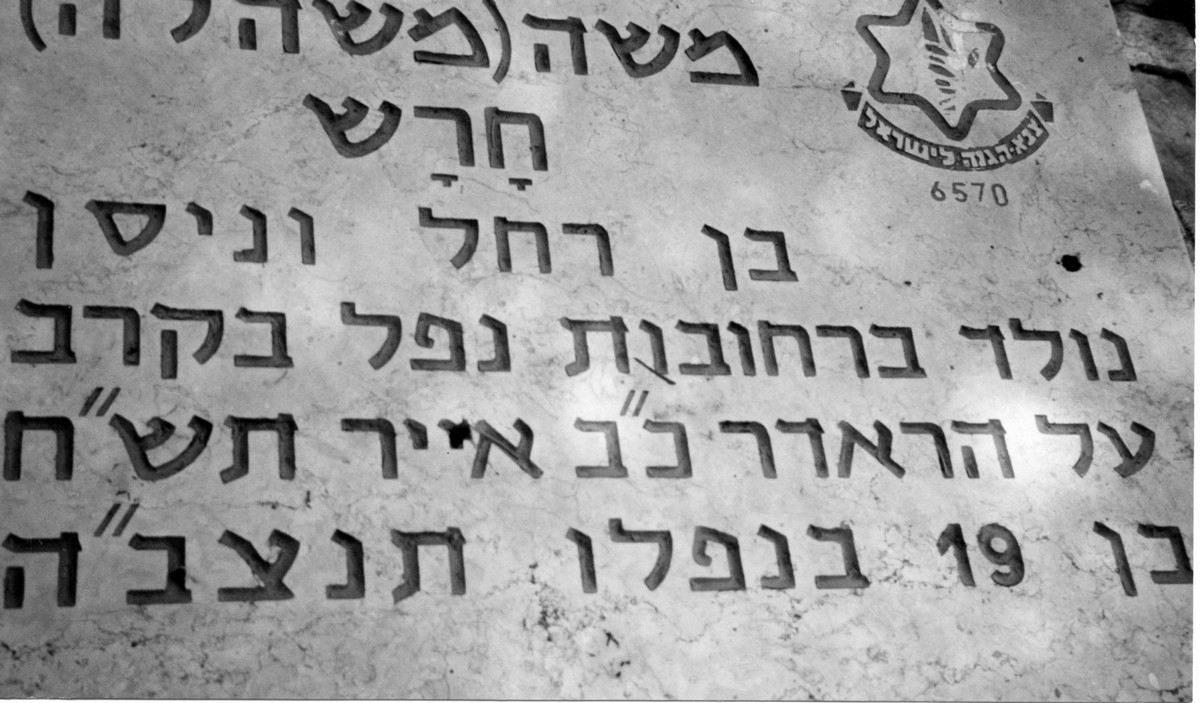 משה(משהל'ה)
צבא·הגנה לישראל
6570
חָרָש
בן רחל וניסן
נולד ברחובות נפל בקרב
על הראדר כ״ב אייר תש״ח
בן 19 בנפלו תנצב״ה